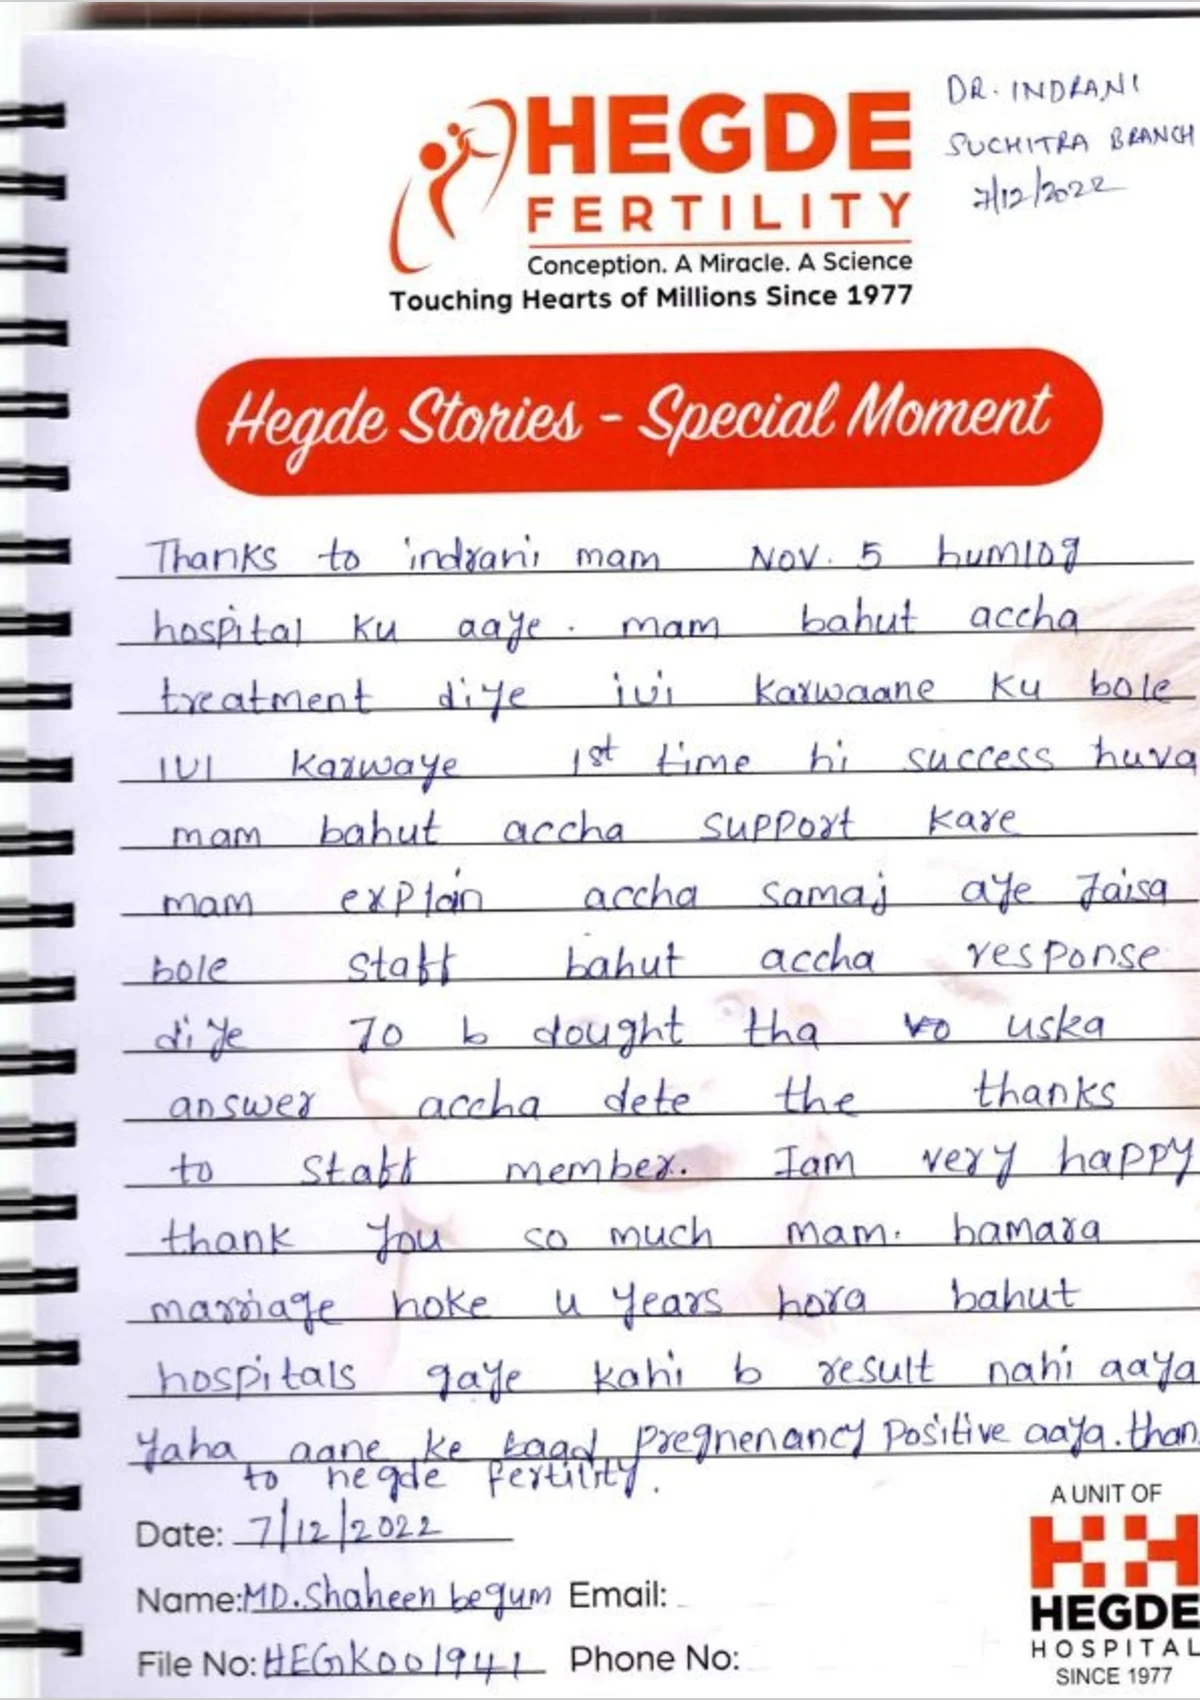 DR. INDRANI
SUCHITRA BRANCH
7/12/2022
HEGDE
FERTILITY
Conception. A Miracle. A Science
Touching Hearts of Millions Since 1977
Hegde Stories - Special Moment
Thanks to indrani mam Nov. 5 humlog
hospital ku aaye. mam bahut accha
treatment diye iui karwaane ku bole
IUI karwaye 1st time hi success huva
mam bahut accha support kare
mam explain accha samaj aye jaisa
bole staff bahut accha response
diye Jo b dought tha vo uska
answer accha dete the thanks
to staff member. Iam very happy
thank you so much mam. hamara
marriage hoke 4 years hora bahut
hospitals gaye kahi b result nahi aaya
yaha aane ke baad pregnenancy Positive aaya. than
to hegde fertility.
Date: 7/12/2022
Name: MD. Shaheen begum Email:
File No: HEGK001941 Phone No:
A UNIT OF
HEGDE
HOSPITAL
SINCE 1977